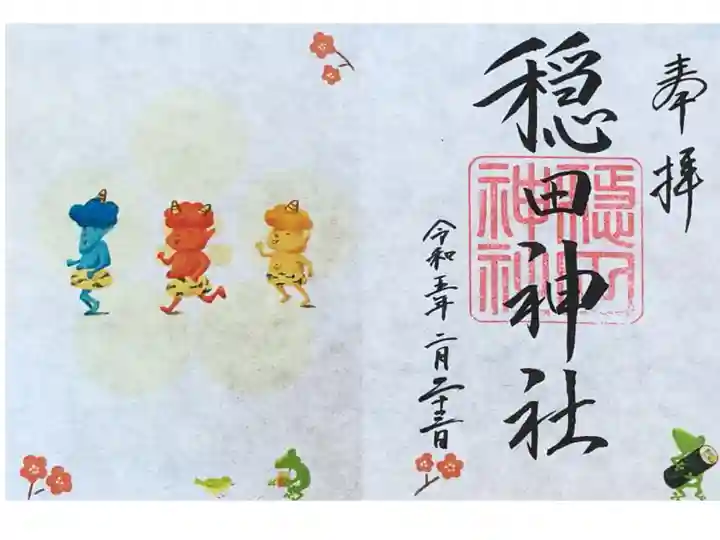 奉拝
穏田神社
穏田
神社
令和五年二月二十三日